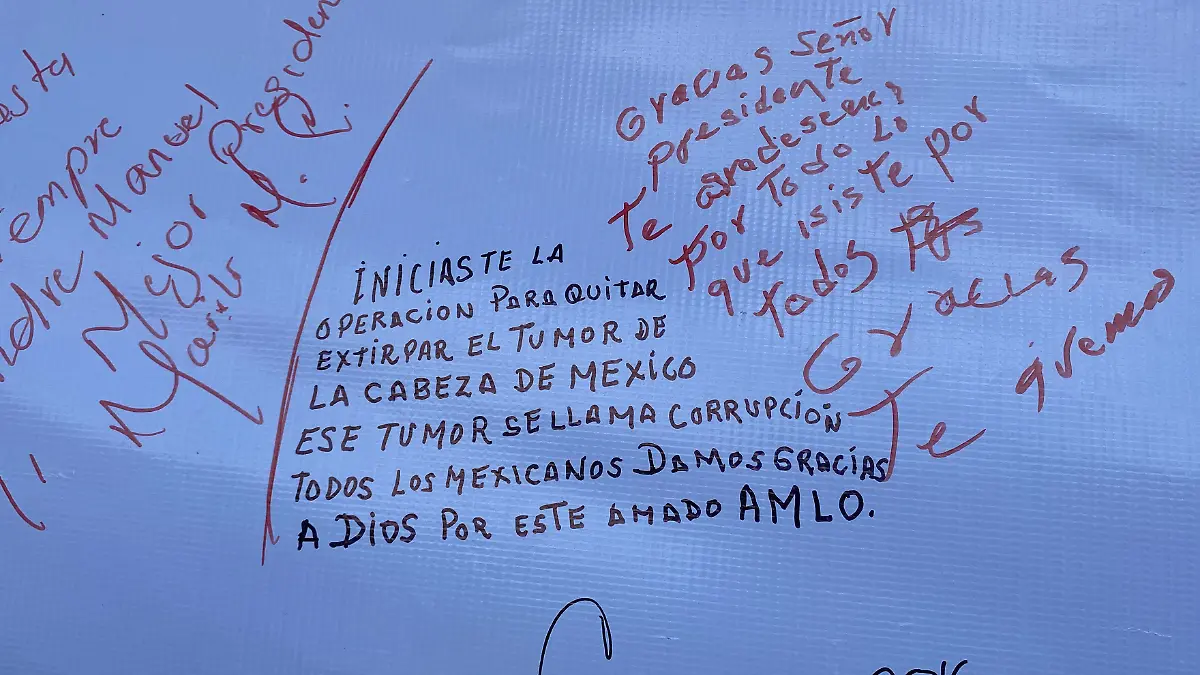 asta
iempre
Andre Manuel
Mejor Presiden
Mariv M. P.
INICIASTE LA
OPERACION PARA QUITAR
EXTIRPAR EL TUMOR DE
LA CABEZA DE MEXICO
ESE TUMOR SE LLAMA CORRUPCION
TODOS LOS MEXICANOS DAMOS GRACIAS
A DIOS POR ESTE AMADO AMLO.
Gracias Señor
presidente
Te
por Todo Lo
que isiste por
todos
Gracias
Te quemos